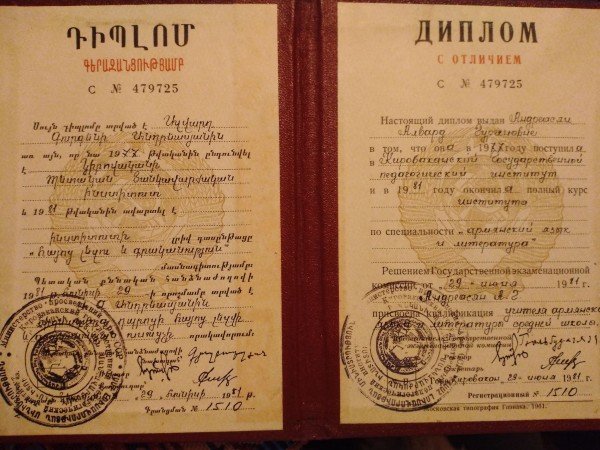 ԴԻՊԼՈՄ
ԳԵՐԱԶԱՆՑՈՒԹՅԱՄԲ
С № 479725
Սույն դիպլոմը տրված է Ալվարդ
Գուրգենի Անդրեասյանին
առ այն, որ նա 1977 թվականին ընդունվել է
Կիրովականի
Պետական Մանկավարժական
ինստիտուտ
և 1981 թվականին ավարտել է
ինստիտուտի լրիվ դասընթացը
հայոց լեզու և գրականություն
մասնագիտությամբ
Պետական քննական հանձնաժողովի
1981 թ. հունիսի 29-ի որոշմամբ տրված է
Անդրեասյանին
դպրոցի հայոց լեզվի
որակավորում
29 հունիսի 1981 թ.
Գրանցման № 1510
ДИПЛОМ
С ОТЛИЧИЕМ
С № 479725
Настоящий диплом выдан Андреасян
Алвард Гургеновне
в том, что она в 1977 году поступила
в Кироваканский Государственный
педагогический институт
и в 1981 году окончила полный курс
института
по специальности „армянский язык
и литература"
Решением Государственной экзаменационной
комиссии от 29 июня 1981 г.
Андреасян А. Г.
присвоена квалификация учителя армянского
языка и литературы средней школы
Секретарь
г. Кировакан 29 июня 1981 г.
Регистрационный № 1510
Московская типография Гознака. 1981.